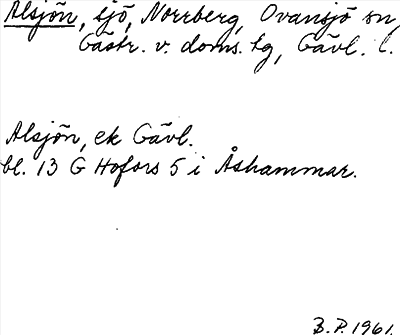 Alsjön, sjö, Norrberg, Ovansjö sn,
Gästr. v. doms. tg, Gävl. l.
Alsjön, ek Gävl.
bl. 13 G Hofors 5 i Åshammar.
B. P. 1961.